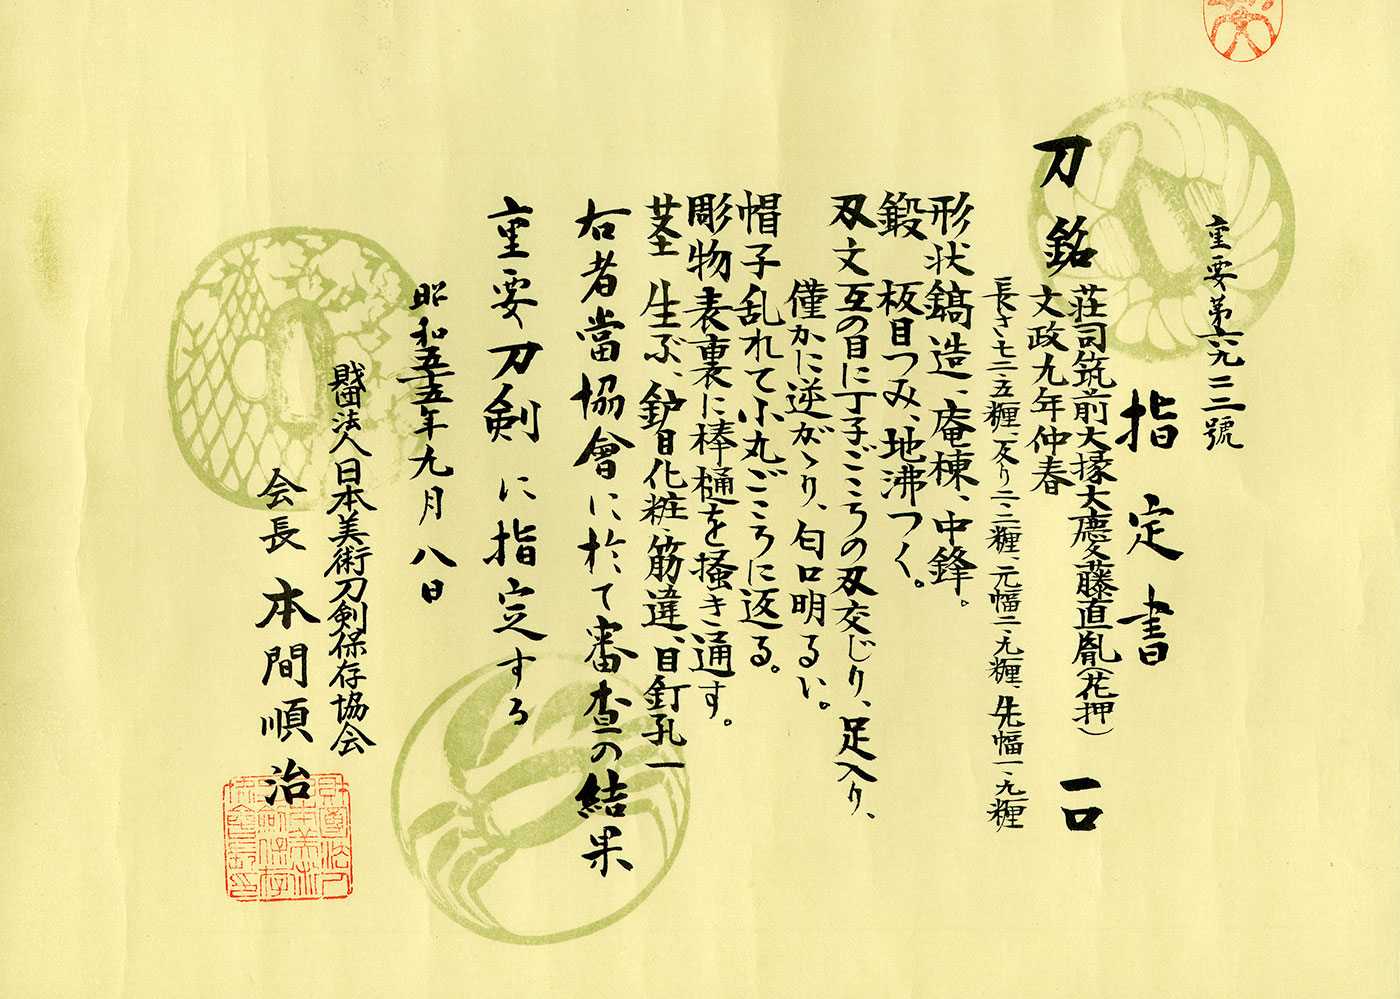 重要第六九二三號
指定書
刀 銘 荘司筑前大掾大慶藤直胤(花押) 一口
文政九年仲春
長さ七二・五糎、反り二・二糎、元幅二・九糎、先幅一・九糎
形状 鎬造、庵棟、中鋒。
鍛 板目つみ、地沸つく。
刃文 互の目に丁子ごころの刃交じり、足入り、
僅かに逆がゝり、匂口明るい。
帽子 乱れて小丸ごころに返る。
彫物 表裏に棒樋を掻き通す。
茎 生ぶ、鈩目化粧筋違、目釘孔一
右者當協會に於て審査の結果
重要刀剣に指定する
昭和五十五年九月八日
財団法人日本美術刀剣保存協会
会長 本間順治